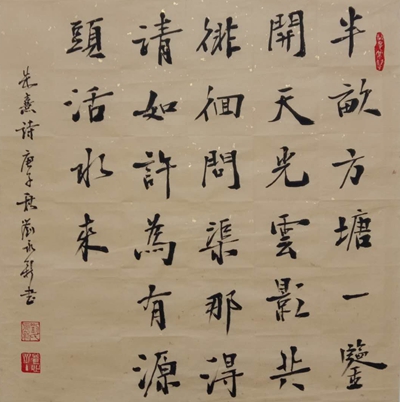 半畝方塘一鑒
開天光雲影共
徘徊問渠那得
清如許為有源
頭活水來
朱熹詩 庚子 書